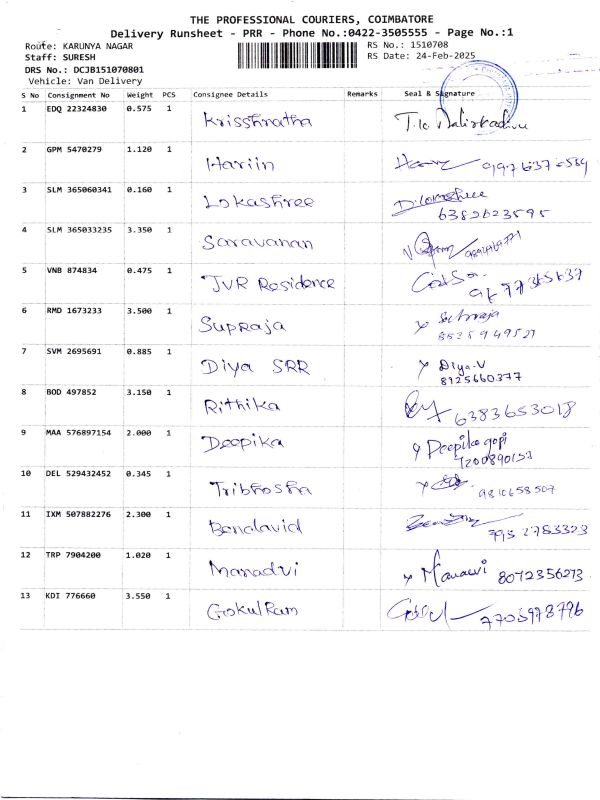 THE PROFESSIONAL COURIERS, COIMBATORE
Delivery Runsheet - PRR - Phone No.:0422-3505555 - Page No.:1
Route: KARUNYA NAGAR
RS No.: 1510708
Staff: SURESH
RS Date: 24-Feb-2025
DRS No.: DCJB151070801
Vehicle: Van Delivery
S No Consignment No Weight PCS Consignee Details Remarks Seal & Signature
1 EDQ 22324830 0.575 1 Krisshnatha
2 GPM 5470279 1.120 1 Hariin
3 SLM 365060341 0.160 1 Lokashree
6382623595
4 SLM 365033235 3.350 1 Saravanan
5 VNB 874834 0.475 1 JVR Residence
6 RMD 1673233 3.500 1 Supraja
7 SVM 2695691 0.885 1 Diya SRR Diya-V
8925660377
8 BOD 497852 3.150 1 Rithika 6383653018
9 MAA 576897154 2.000 1 Deepika Deepika gopi
7200890153
10 DEL 529432452 0.345 1 Tribhosha 9810658507
11 IXM 507882276 2.300 1 Bendavid 7952783323
12 TRP 7904200 1.020 1 Manadvi 8072356273
13 KDI 776660 3.550 1 GokulRam 7703978796